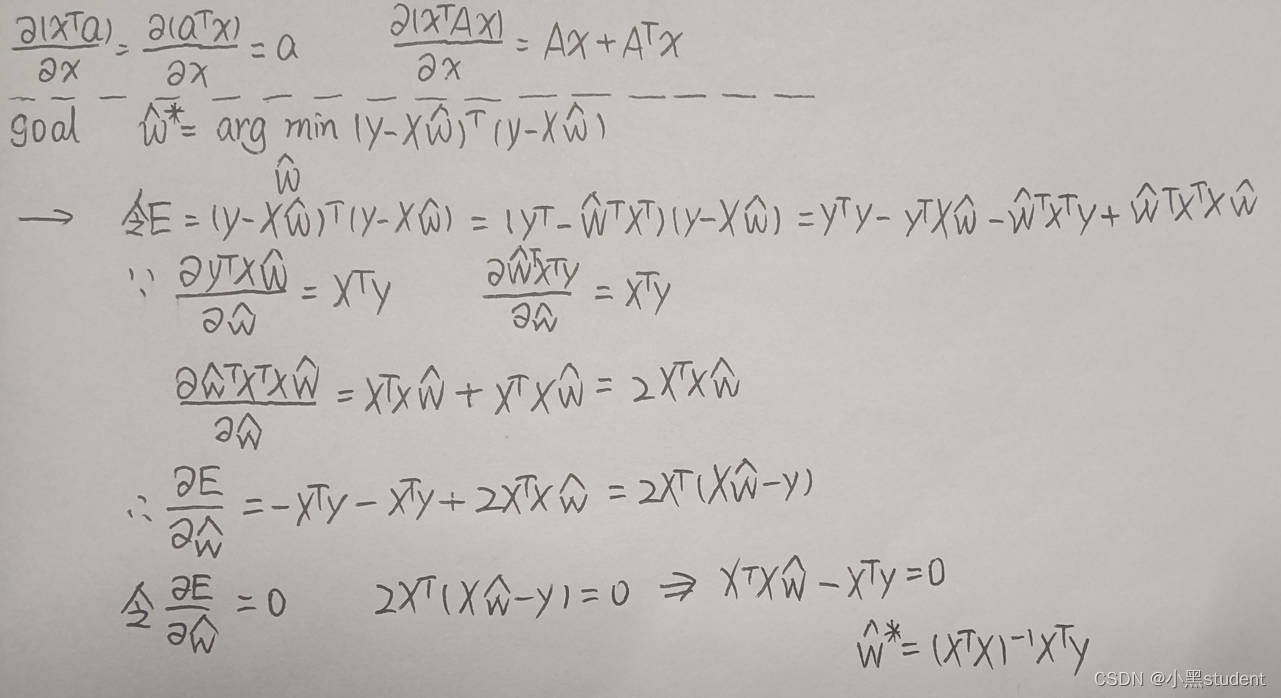 ∂(xᵀa)/∂x = ∂(aᵀx)/∂x = a    ∂(xᵀAx)/∂x = Ax + Aᵀx
goal ŵ* = arg min (y-Xŵ)ᵀ(y-Xŵ)
ŵ
→ 令E = (y-Xŵ)ᵀ(y-Xŵ) = (yᵀ-ŵᵀXᵀ)(y-Xŵ) = yᵀy - yᵀXŵ - ŵᵀXᵀy + ŵᵀXᵀXŵ
∵ ∂yᵀXŵ/∂ŵ = Xᵀy    ∂ŵᵀXᵀy/∂ŵ = Xᵀy
∂ŵᵀXᵀXŵ/∂ŵ = XᵀXŵ + XᵀXŵ = 2XᵀXŵ
∴ ∂E/∂ŵ = -Xᵀy - Xᵀy + 2XᵀXŵ = 2Xᵀ(Xŵ-y)
令 ∂E/∂ŵ = 0    2Xᵀ(Xŵ-y) = 0 ⇒ XᵀXŵ - Xᵀy = 0
ŵ* = (XᵀX)⁻¹Xᵀy
CSDN @小黑student